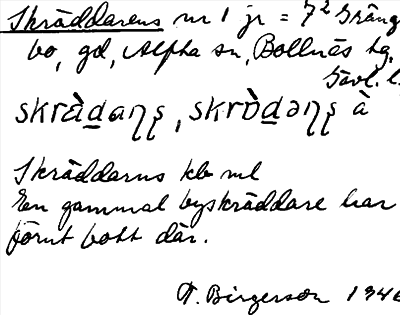 Skräddarens nr 1 jr = 7² Gräng
bo, gd, Alpha sn, Bollnäs tg.
Gävl. l.
skràḏaɳʂ, skròḏəɳʂ à
Skräddarns kb ml
En gammal byskräddare har
förut bott där.
T. Birgerson 1946